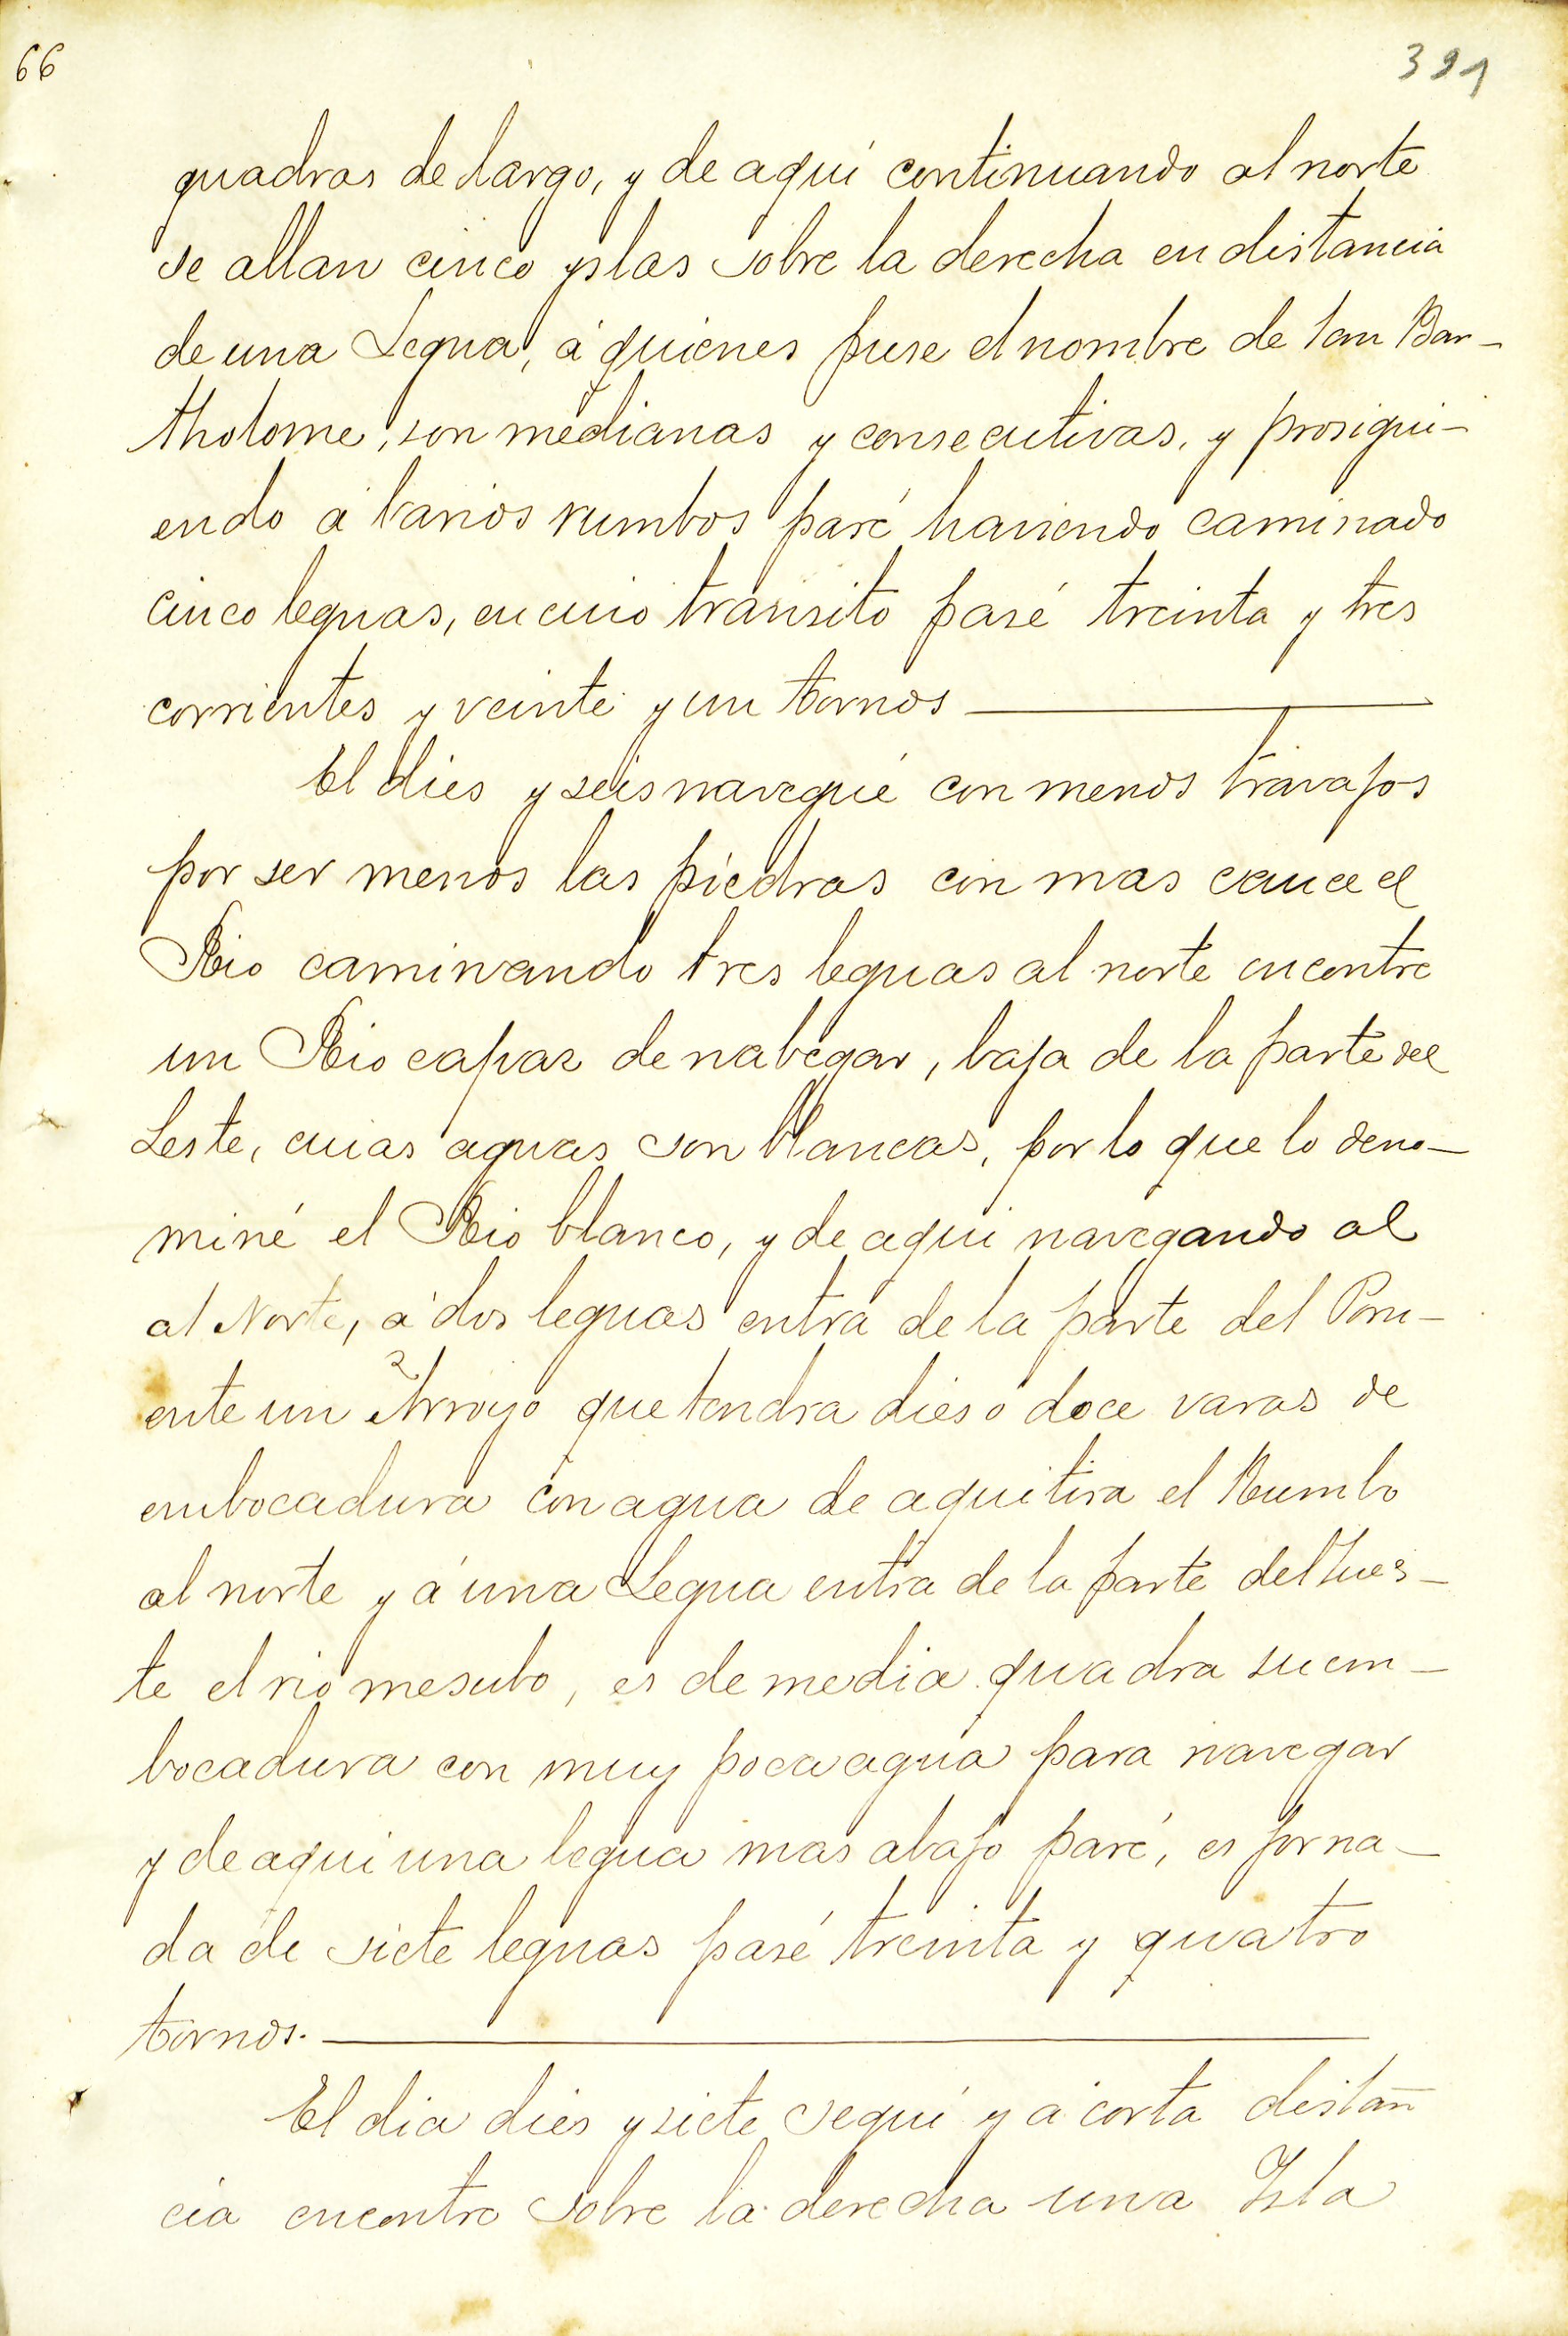 66
391
quadras de largo, y de aqui continuando al norte
se allan cinco yslas sobre la derecha en distancia
de una Legua, á quienes puse el nombre de San Bar-
tholome, son medianas y consecutivas, y prosigui-
endo á barios rumbos paré haviendo caminado
cinco leguas, en cuio transito pasé treinta y tres
corrientes y veinte y un tornos
El dies y seis navegué con menos travajos
por ser menos las piedras con mas cauce el
Rio caminando tres leguas al norte encontre
un Rio capaz de nabegar, baja de la parte del
Leste, cuias aguas son blancas, por lo que lo deno-
miné el Rio blanco, y de aqui navegando al
al Norte, á dos leguas entra de la parte del Poni-
ente un Arroyo que tendra dies o doce varas de
embocadura con agua de aqui tira el Rumbo
al norte y á una Legua entra de la parte del Sues-
te el rio mesubo, es de media quadra su em-
bocadura con muy poca agua para navegar
y de aqui una legua mas abajo paré, es jorna-
da de siete leguas pasé treinta y quatro
tornos.
El dia dies y siete segui y á corta distan
cia encontre sobre la derecha una Isla